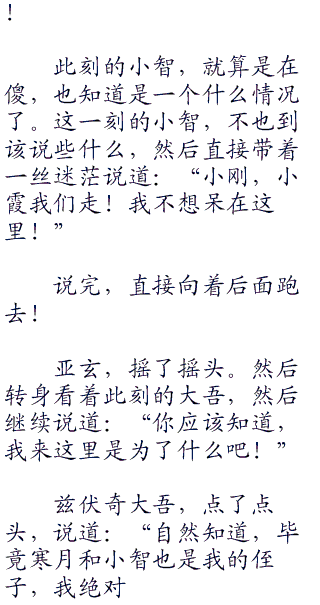 ！
此刻的小智，就算是在
傻，也知道是一个什么情况
了。这一刻的小智，不也到
该说些什么，然后直接带着
一丝迷茫说道：“小刚，小
霞我们走！我不想呆在这
里！”
说完，直接向着后面跑
去！
亚玄，摇了摇头。然后
转身看着此刻的大吾，然后
继续说道：“你应该知道，
我来这里是为了什么吧！”
兹伏奇大吾，点了点
头，说道：“自然知道，毕
竟寒月和小智也是我的侄
子，我绝对